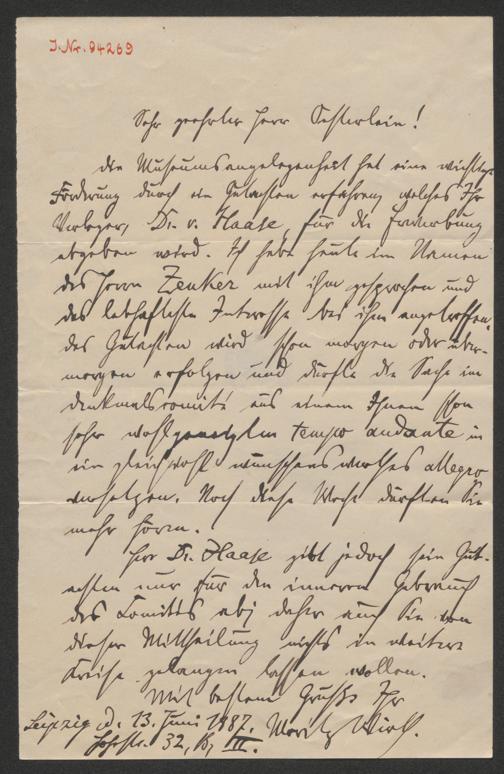 J.Nr. 94269
Sehr geehrter Herr Oesterlein!
die Museumsangelegenheit hat eine wichtige
Förderung durch ein Gutachten erfahren, welches Ihr
Verleger, Dr. v. Haase, für die Erwerbung
abgeben wird. Ich habe heute im Namen
des Herrn Zenker mit ihm gesprochen und
das lebhafteste Interesse bei ihm angetroffen.
das Gutachten wird schon morgen oder über-
morgen erfolgen und dürfte die Sache im
denkmalscomité aus einem Ihnen schon
sehr wohl tempo andante in
ein gleichwohl wünschenswerthes allegro
versetzen. Noch diese Woche dürften Sie
mehr hören.
Herr Dr. Haase gibt jedoch sein Gut-
achten nur für den inneren Gebrauch
des Comités ab; daher auch Sie von
dieser Mittheilung nichts in weitere
Kreise gelangen lassen wollen.
Mit bestem Gruße Ihr
Leipzig d. 13. Juni 1887. Moritz Wirth.
32, B, III.